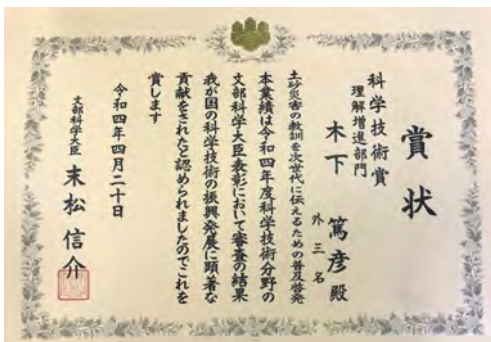 賞状
科学技術賞
理解増進部門
木下 篤彦 殿
外三名
土砂災害の教訓を次世代に伝えるための普及啓発
本業績は令和四年度科学技術分野の
文部科学大臣表彰において審査の結果
我が国の科学技術の振興発展に顕著な
貢献をされたと認められましたのでこれを
賞します
令和四年四月二十日
文部科学大臣 末松信介